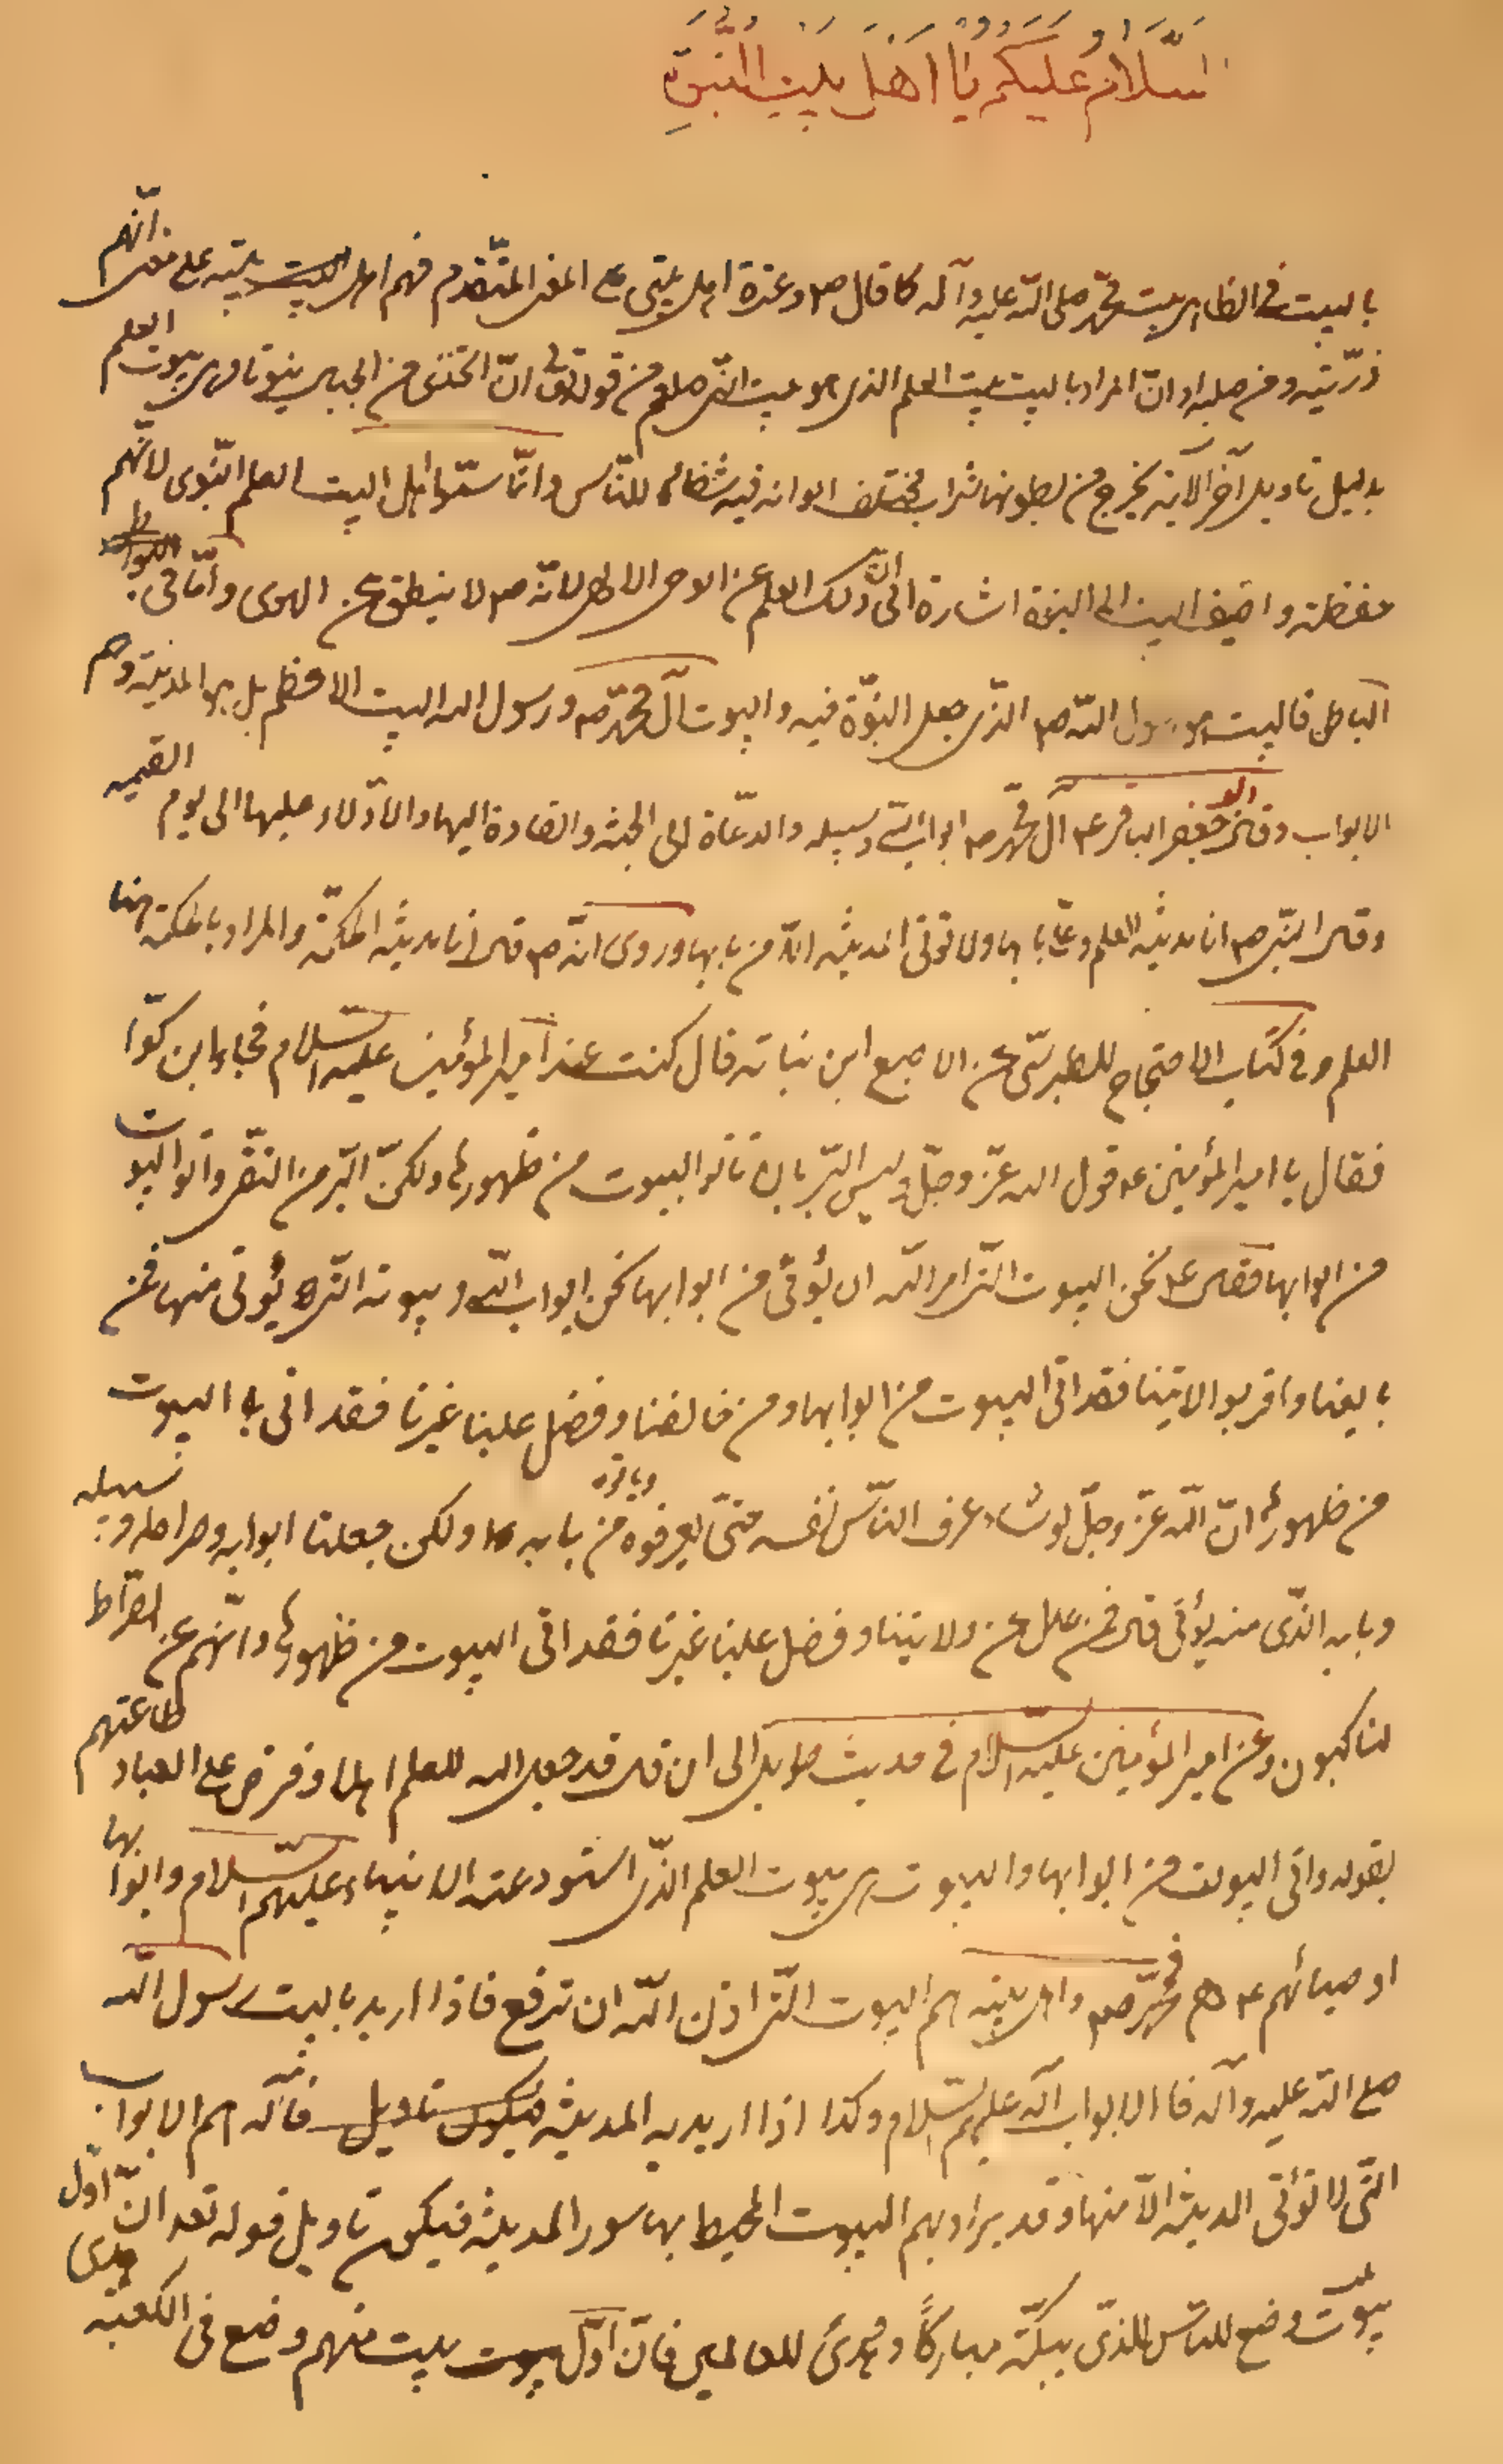 السَّلَامُ عَلَيْكُمْ يَا اَهْلَ بَيْتِ النُّبُوَّةِ
بالبيت في الظاهر بيت محمد صلى الله عليه وآله كما قال ص وعترة اهل بيتي على المعنى المتقدم فهم اهل البيت بيته على معنى انّهم
ذرّيته ومن صلبه او انّ المراد بالبيت بيت العلم الذي هو بيت النبي صلعم من قوله تعالى ان اتّخذي من الجبال بيوتا وهي بيوت العلم
بدليل تاويل آخر الآية يخرج من بطونها شراب مختلف الوانه فيه شفاء للنّاس وانّما سمّوا اهل البيت العلم النّبوى لانّهم
حفظته واضيف البيت الى النبوة اشارة الى انّ ذلك العلم عن الوحى الالهي لانّه ص لا ينطق عن الهوى وامّا في
الباطن فالبيت هو رسول اللّه ص الذّي جعل النبوّة فيه والبيوت آل محمّد ص ورسول الله البيت الاعظم بل هو المدينة وهم
الابواب وقال ابو جعفر الباقر ع آل محمّد ص ابواب اللّه وسبيله والدعّاة الى الجنّة والقادة اليها والادّلاء عليها الى يوم القيمه
وقال النبّي ص انا مدينة العلم وعلي بابها ولا تؤتى المدينة الّا من بابها وروى انّه ص قال انا مدينة الحكمّة والمراد بالحكمة هنا
العلم وفي كتاب الاحتجاج للطبرسّي عن الاصبغ ابن نباته قال كنت عند امير المؤمنين عليه السّلام فجاءه ابن كوّا
فقال يا امير المؤمنين ع قول الله عزّ وجلّ وليس البّر بان تأتوا البيوت من ظهورها ولكنّ البّر من اتّقى وأتوا البيوت
من ابوابها فقال ع نحن البيوت التي امر اللّه ان يؤتى من ابوابها نحن ابواب اللّه وبيوته التي يؤتى منها فمن
بايعنا واقر بولايتنا فقد اتى البيوت من ابوابها ومن خالفنا وفضل علينا غيرنا فقد اتى البيوت
من ظهورها انّ اللّه عزّ وجلّ لو شاء عرف النّاس نفسه حتّى يعرفوه وياتوه من بابه ولكن جعلنا ابوابه وصراطه وسبيله
وبابه الذّى منه يؤتى قال فمن عدل عن ولايتنا وفضل علينا غيرنا فقد اتى البيوت من ظهورها وانّهم عن الصّراط
لناكبون وعن امير المؤمنين عليه السّلام في حديث طويل الى ان قال قد جعل الله للعلم اهلا وفرض على العباد طاعتهم
بقوله واتى البيوت من ابوابها والبيوت هي بيوت العلم الذّى استودعته الانبياء عليهم السّلام وابوابها
اوصيائهم ع فمحمّد ص واهل بيته هم البيوت التّي اذن اللّه ان ترفع فاذا اريد بالبيت رسول اللّه
صلى اللّه عليه وآله فالابواب آله عليهم السّلام وكذا اذا اريد به المدينة فيكون تاويل فآله هم الابواب
التّى لا تؤتى المدينة الّا منها وقد يراد بهم البيوت المحيط بها سور المدينة فيكون تاويل قوله تعه انّ اوّل
بيت وضع للنّاس للّذى ببكّة مباركاً وهدىً للعالمين فانّ اوّل بيت منهم وضع في الكعبة هدى